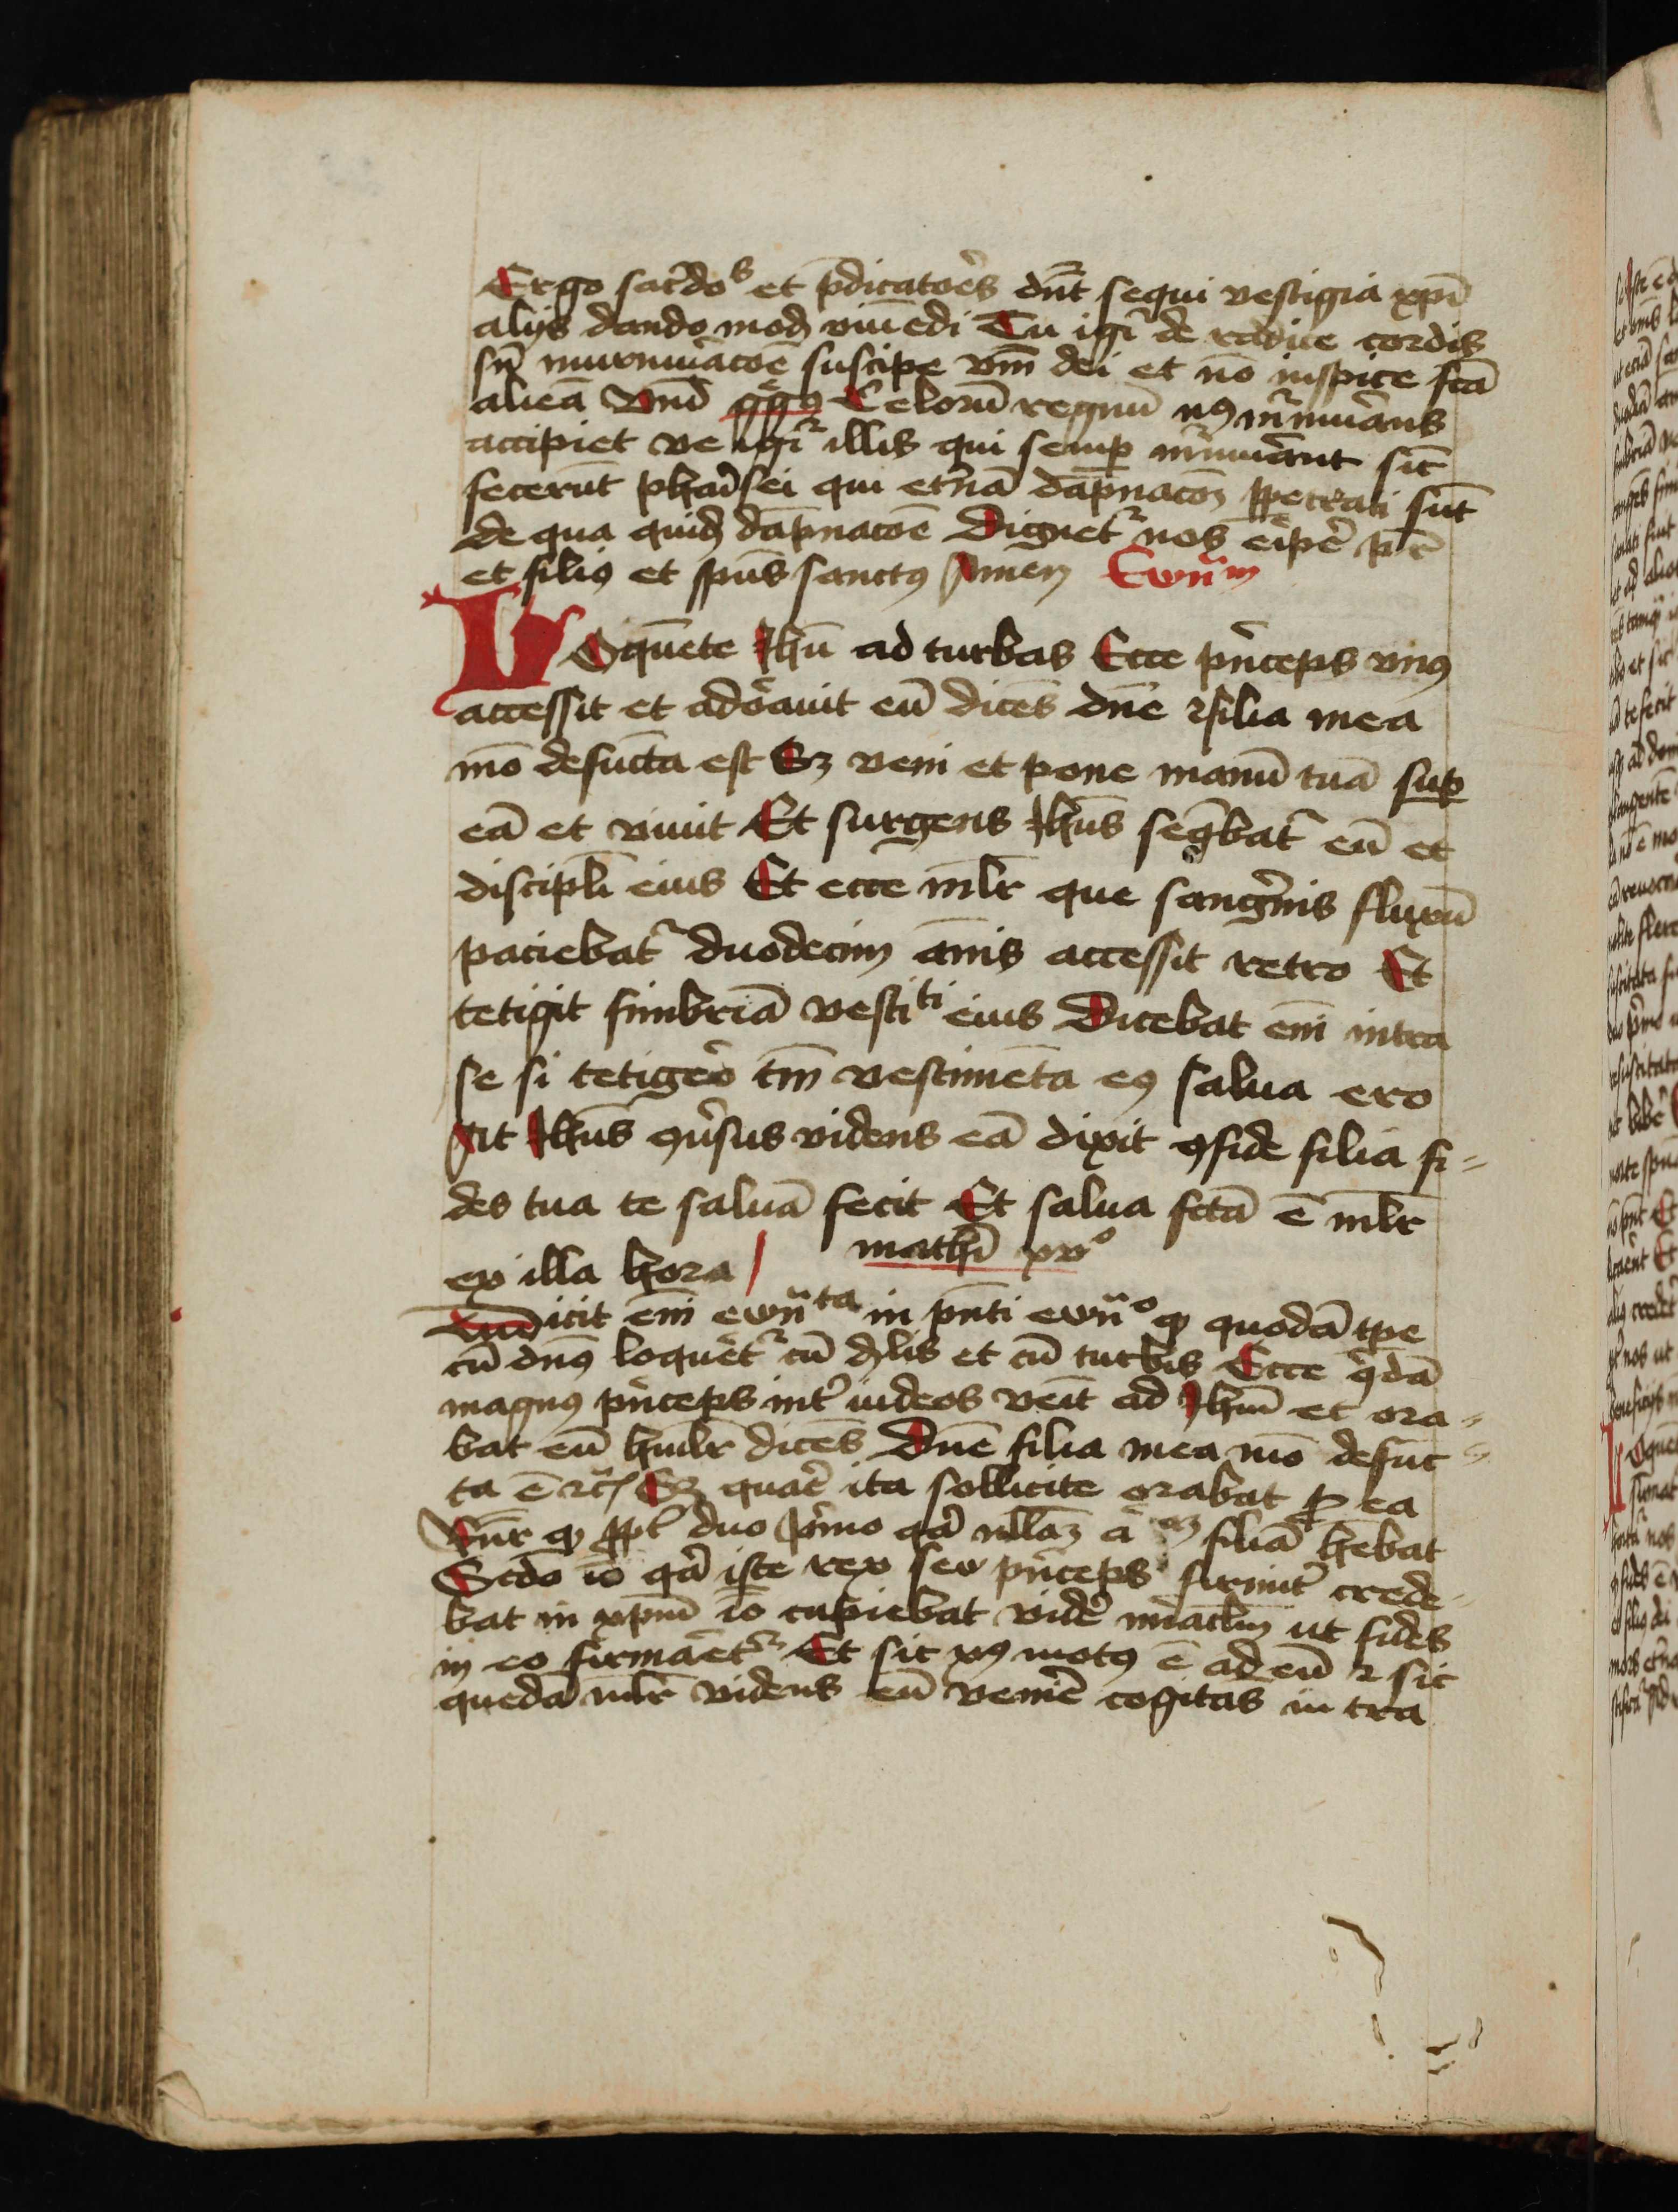 Ergo sac̄doˢ et p̄dicatoēs dn̄t sequi vestigia xpī
alijs dando modꝫ viuēdi Tu igiᷣ de radice cordis
sn̄ murmuracōe suscipe vm̄ dei et nō inspice fcā
alienā Vnd̄ gͤgꝰ Celorū regnū nꝰ mᷣmurās
accipiet ve igiᷣ illis qui semꝑ mᷣmurant sic̄
fecerūt phaīsei qui et̄nā dāpnacōꝫ īpetrati sūt
de qua quidꝫ dāpnacōe Dignetᷣ nos eīpe pr̄
et filiꝰ et spūs sanctꝰ Amen Ewn̄m
LOquēte Ihū ad turbas Ecce pͥnceps vnꝰ
accessit et adoͣuit eū dicēs dn̄e ꝛ filia mea
mō defūcta est Sꝫ veni et pone manū tuā suꝑ
eā et viuit Et surgens Ihūs seqͣbatᷣ eū et
discipl̄i eius Et ecce ml̄r que sangͥnis fluxū
paciebatᷣ duodecim ānis accessit retro Et
tetigit fimbriā vestiᵗⁱ eius Dicebat em̄ intra
se si tetigeͦ tm̄ vestimēta eꝰ salua ero
At Ihūs ꝯͥsus videns eā dixit ꝯfide filia fi=
des tua te saluā fecit Et salua fctā ē ml̄r
ex illa hora / mathī xvᵒ
Dicit em̄ ewn̄ᵗᵃ in pn̄ti ewn̄ᵒ ꝙ quodā tp̄e
cū dn̄ꝰ loquetᷣ cū dꝫlis et cū turbis Ecce qͥdā
magnꝰ pͥnceps int̄ iudeos veīt ad Ihm̄ et ora=
bat eū huml̄r dicēs Dn̄e filia mea mō defūc=
ta ē ꝛc̄ Sꝫ quaē ita sollicite orabat ꝓ ea
Rn̄r ꝙ ꝓpt̄ duo pͥmo qͣ nllaꝫ filiā hēbat
Scdō iō qͣ iste rex seu pͥnceps firmit̄ crede=
bat in xpm̄ iō cupiebat vidē mīaclm̄ ut fides
in eo firmaētᷣ Et sic xꝰ motꝰ ē ad eū ꝛ sic
quedā ml̄r videns eū veniē cogitās in tra